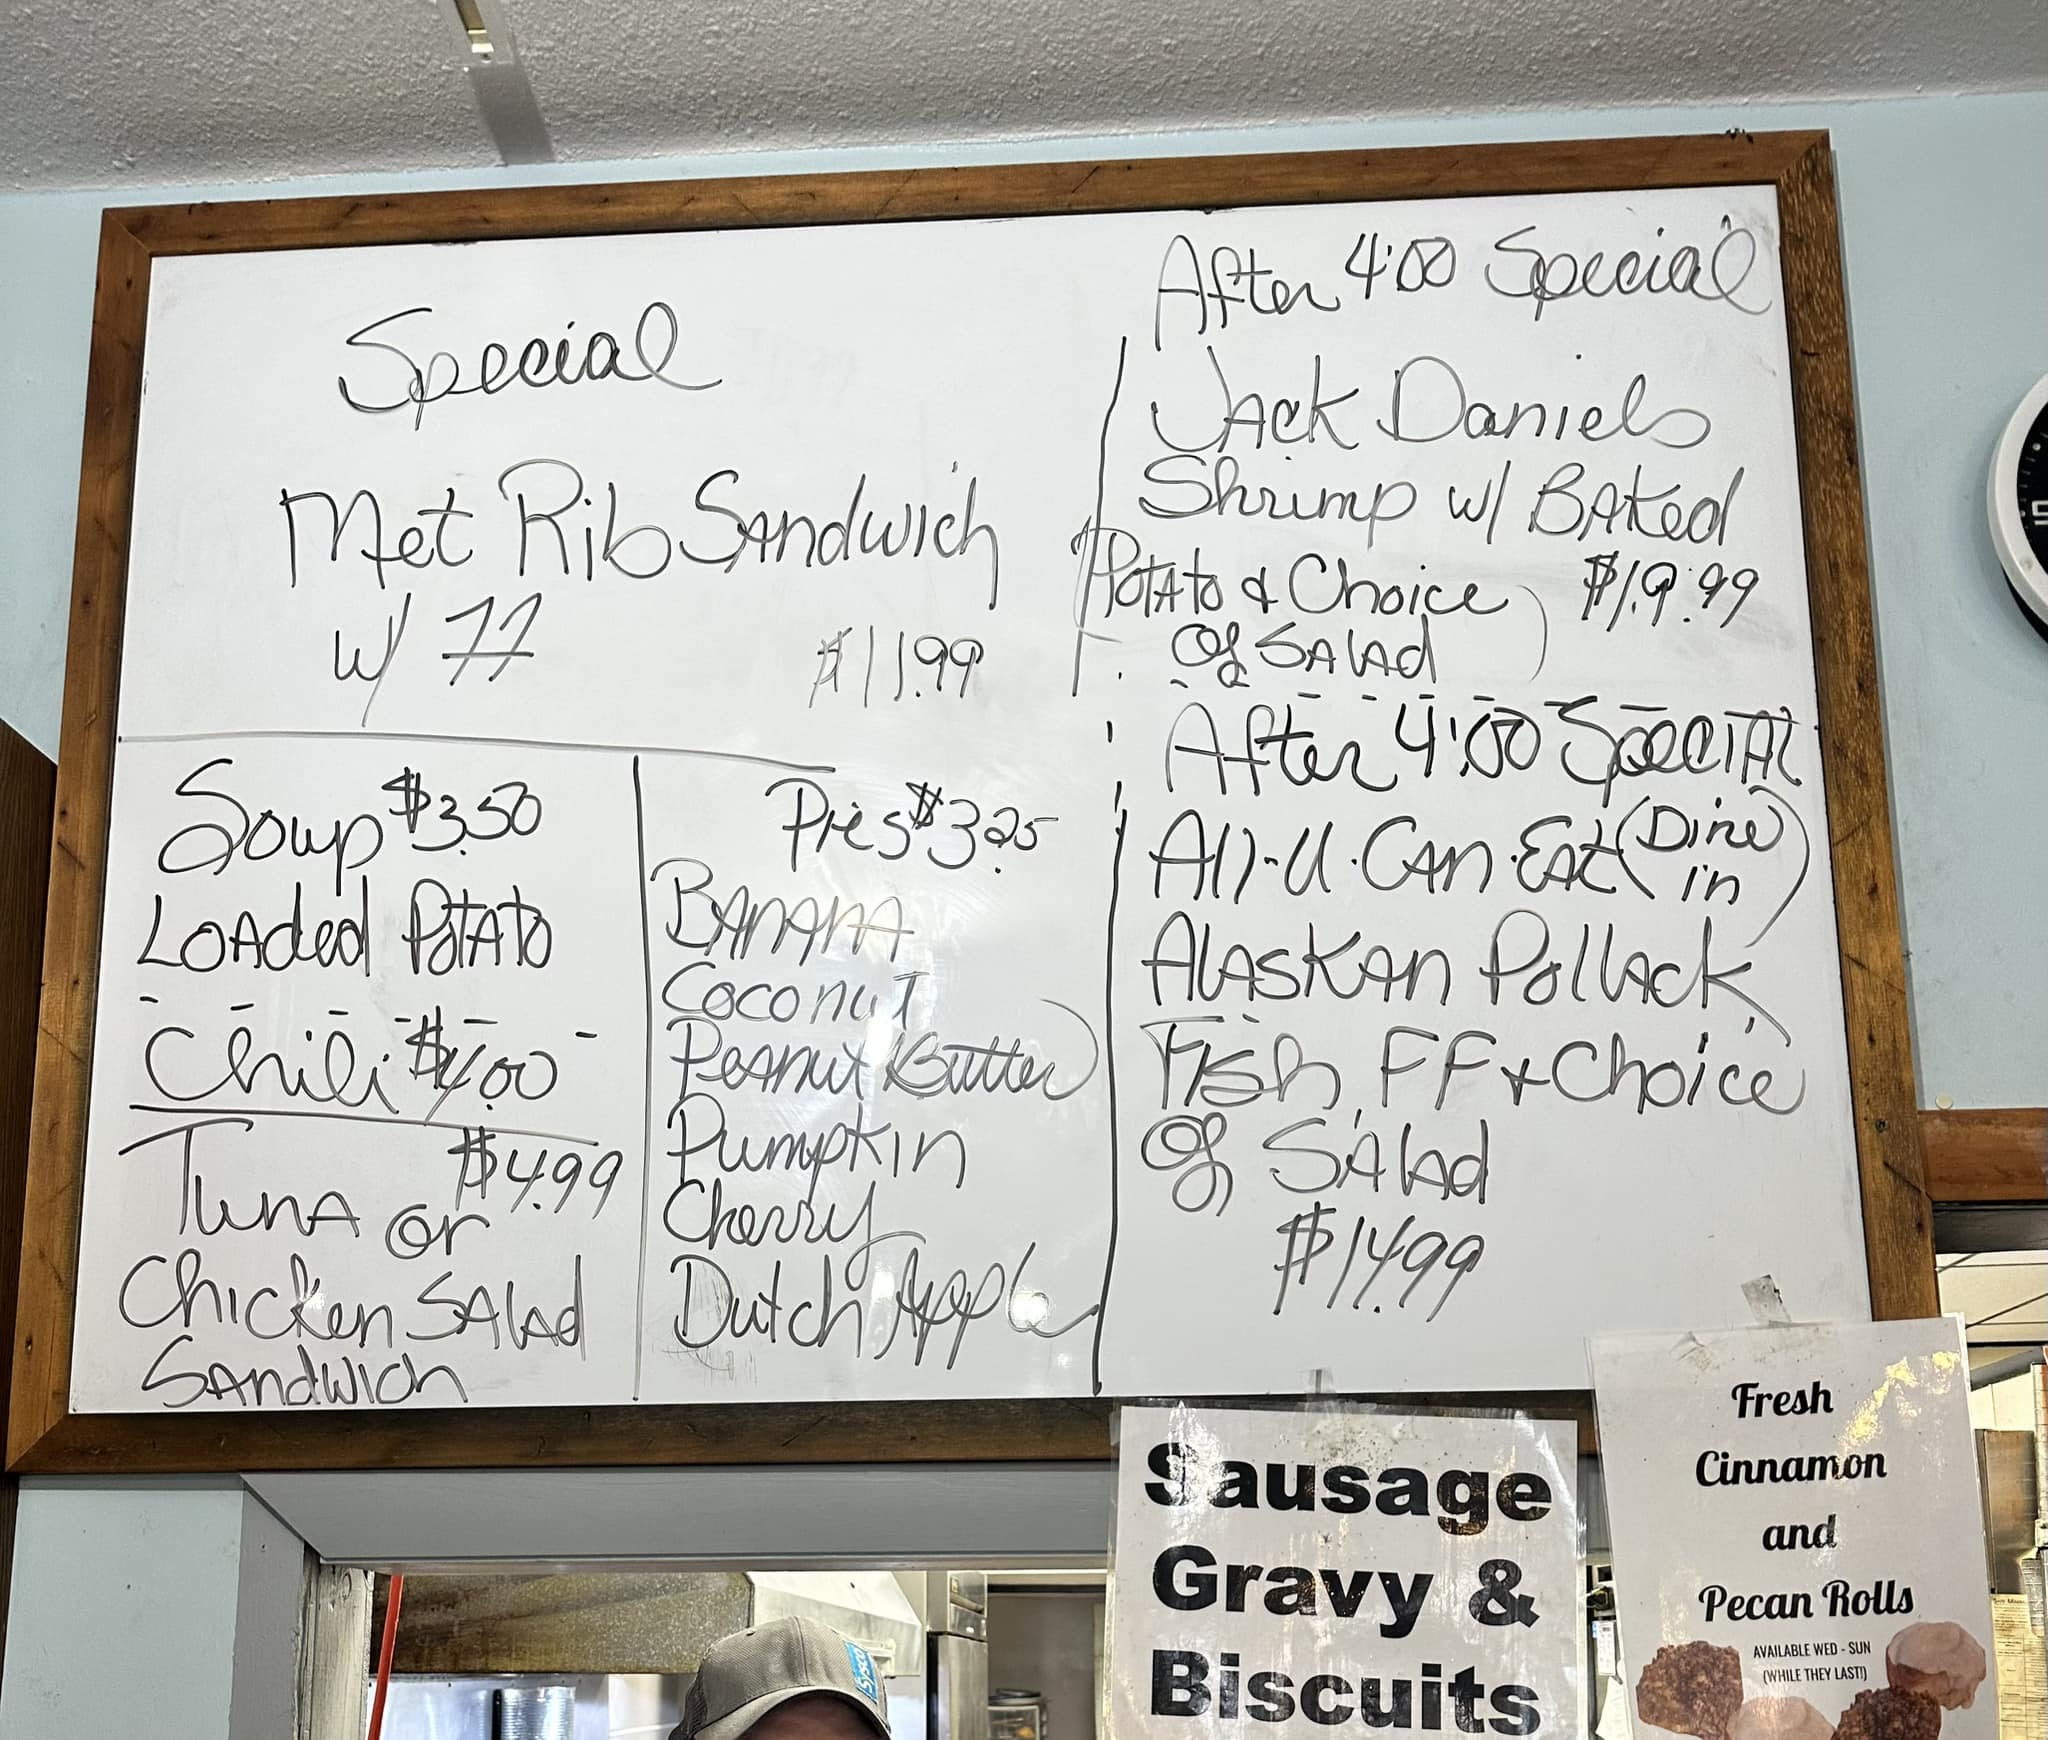 Special
Met Rib Sandwich
w/ FF
$11.99
Soup $3.50
Loaded Potato
Chili $4.00
$4.99
Tuna or
Chicken Salad
Sandwich
Pies $3.25
Banana
Coconut
Peanut Butter
Pumpkin
Cherry
Dutch Apple
After 4:00 Special
Jack Daniels
Shrimp w/ Baked
Potato & Choice $19.99
of Salad
After 4:00 Special
All-U-Can-Eat (Dine in)
Alaskan Pollack
Fish, FF & Choice
of Salad
$14.99
Sausage
Gravy &
Biscuits
Fresh
Cinnamon
and
Pecan Rolls
AVAILABLE WED - SUN
(WHILE THEY LAST!)
Sysco